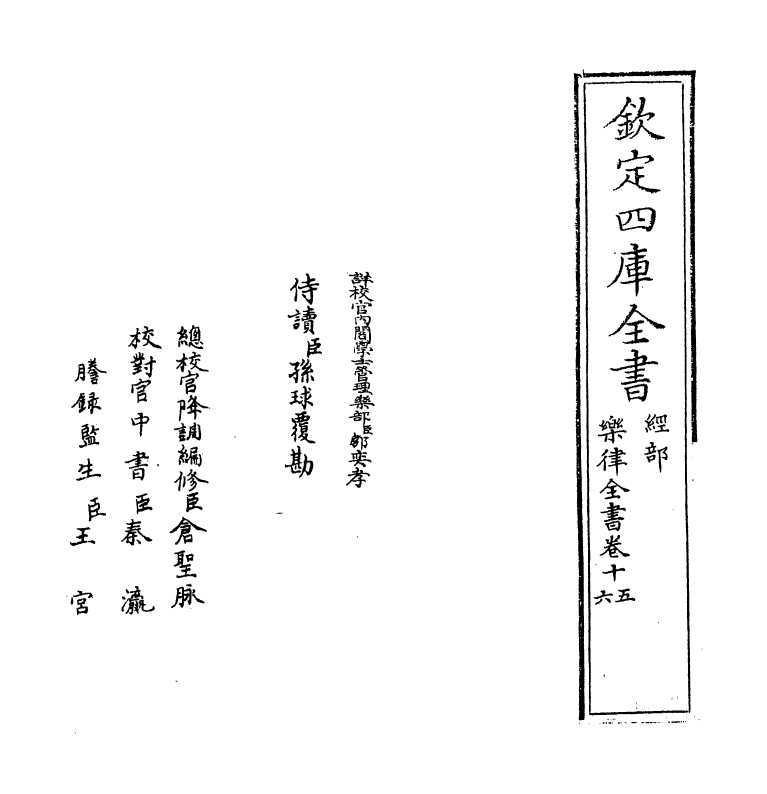 欽定四庫全書
經部
樂律全書卷十五
六
詳校官內閣學士管理樂部臣鄒奕孝
侍讀臣孫球覆勘
總校官降調編修臣倉聖脉
校對官中書臣秦瀛
謄錄監生臣王宮